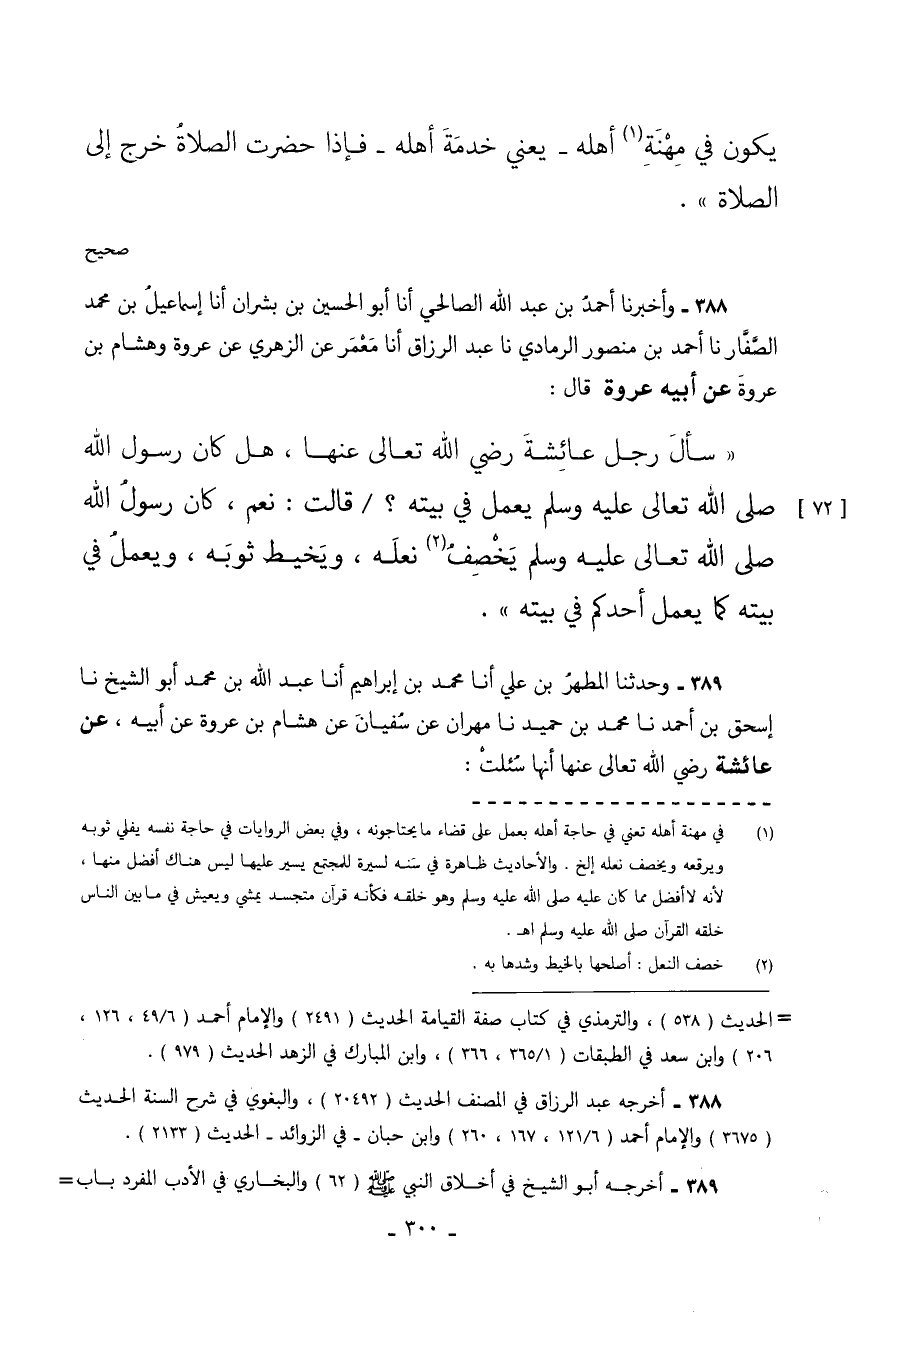 يكون في مِهْنَةِ(١) أهله ـ يعني خدمَةَ أهله ـ فإذا حضرت الصلاةُ خرج إلى
الصلاة » .
صحيح
٣٨٨ ـ وأخبرنا أحمدُ بن عبد الله الصالحي أنا أبو الحسين بن بشران أنا إسماعيلُ بن محمد
الصَّفَّار نا أحمد بن منصور الرمادي نا عبد الرزاق أنا مَعْمَر عن الزهري عن عروة وهشام بن
عروةَ عن أبيه عروة قال :
« سألَ رجل عائِشةَ رضي الله تعالى عنها ، هل كان رسول الله
صلى الله تعالى عليه وسلم يعمل في بيته ؟ / قالت : نعم ، كان رسولُ الله [ ٧٢ ]
صلى الله تعالى عليه وسلم يَخْصِفُ(٢) نعلَه ، ويَخيط ثوبَه ، ويعملُ في
بيته كما يعمل أحدكم في بيته » .
٣٨٩ ـ وحدثنا المطهرُ بن علي أنا محمد بن إبراهيم أنا عبد الله بن محمد أبو الشيخ نا
إسحق بن أحمد نا محمد بن حميد نا مهران عن سُفيانَ عن هشام بن عروة عن أبيه ، عن
عائشة رضي الله تعالى عنها أنها سُئلتْ :
(١) في مهنة أهله تعني في حاجة أهله بعمل على قضاء مايحتاجونه ، وفي بعض الروايات في حاجة نفسه يفلي ثوبه
ويرقعه ويخصف نعله إلخ . والأحاديث ظاهرة في سَنه لسيرة للمجتمع يسير عليها ليس هناك أفضل منها ،
لأنه لاأفضل مما كان عليه صلى الله عليه وسلم وهو خلقه فكأنه قرآن متجسد يمشي ويعيش في مابين الناس
خلقه القرآن صلى الله عليه وسلم اهـ .
(٢) خصف النعل : أصلحها بالخيط وشدها به .
= الحديث ( ٥٣٨ ) ، والترمذي في كتاب صفة القيامة الحديث ( ٢٤٩١ ) والإمام أحمد ( ٤٩/٦ ، ١٢٦ ،
٢٠٦ ) وابن سعد في الطبقات ( ٣٦٥/١ ، ٣٦٦ ) ، وابن المبارك في الزهد الحديث ( ٩٧٩ ) .
٣٨٨ ـ أخرجه عبد الرزاق في المصنف الحديث ( ٢٠٤٩٢ ) ، والبغوي في شرح السنة الحديث
( ٣٦٧٥ ) والإمام أحمد ( ١٢١/٦ ، ١٦٧ ، ٢٦٠ ) وابن حبان ـ في الزوائد ـ الحديث ( ٢١٣٣ ) .
٣٨٩ ـ أخرجه أبو الشيخ في أخلاق النبي ﷺ ( ٦٢ ) والبخاري في الأدب المفرد باب =
ـ ٣٠٠ ـ